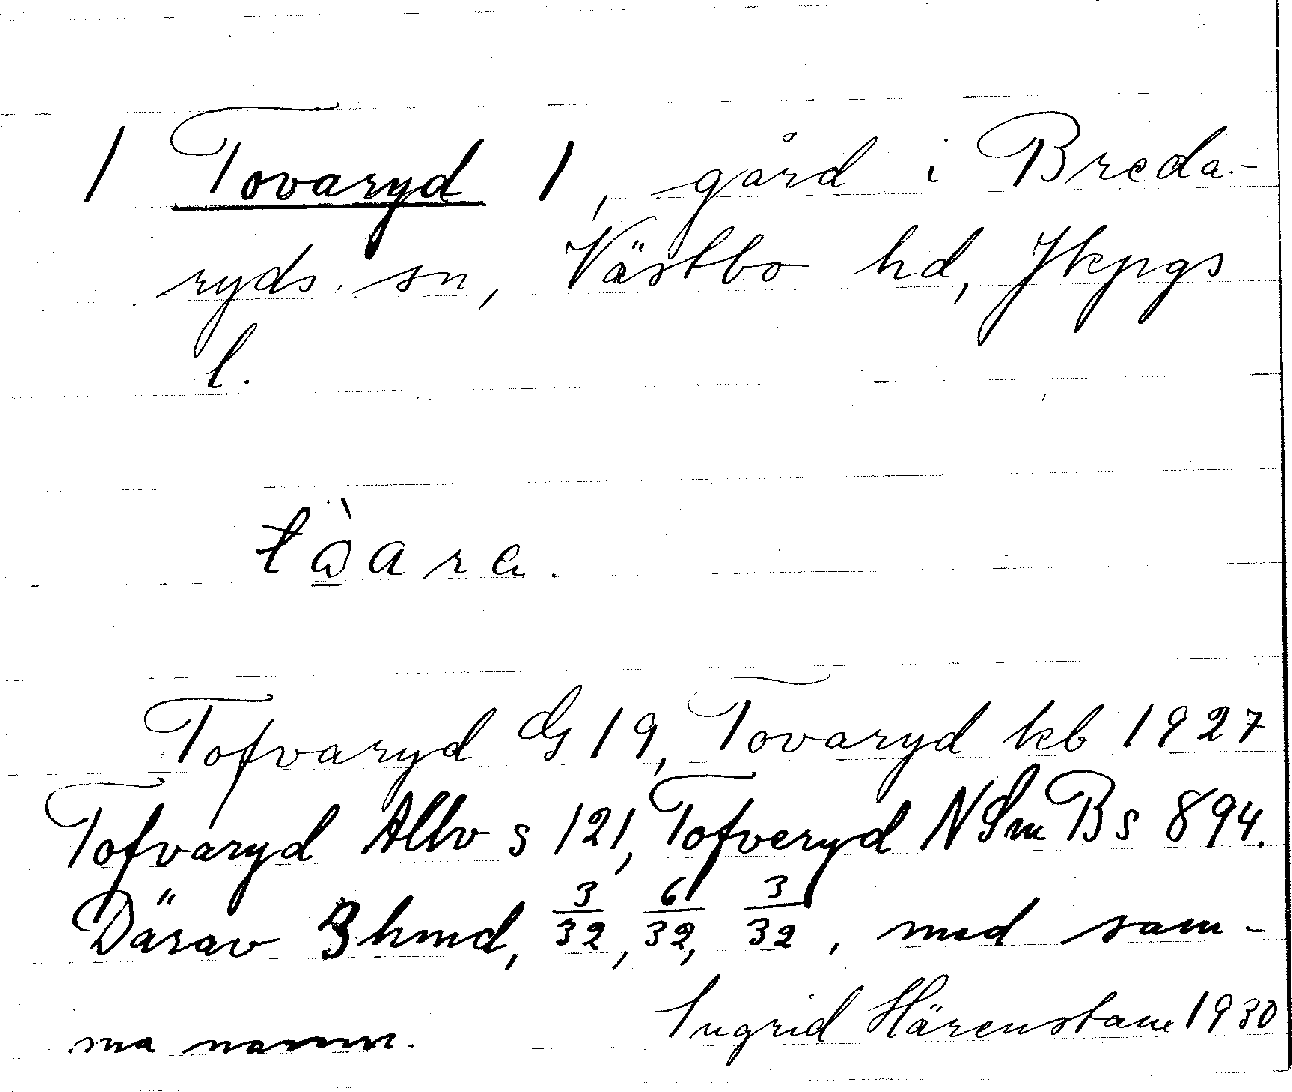 1 Tovaryd 1, gård i Breda-
ryds sn, Västbo hd, Jkpgs
l.
Tofvaryd G 19, Tovaryd kb 1927
Tofvaryd Allv s 121, Tofveryd NSmB s 894.
Därav 3 hmd, 3/32, 6/32, 3/32, med sam-
ma namn. Ingrid Härenstam 1930